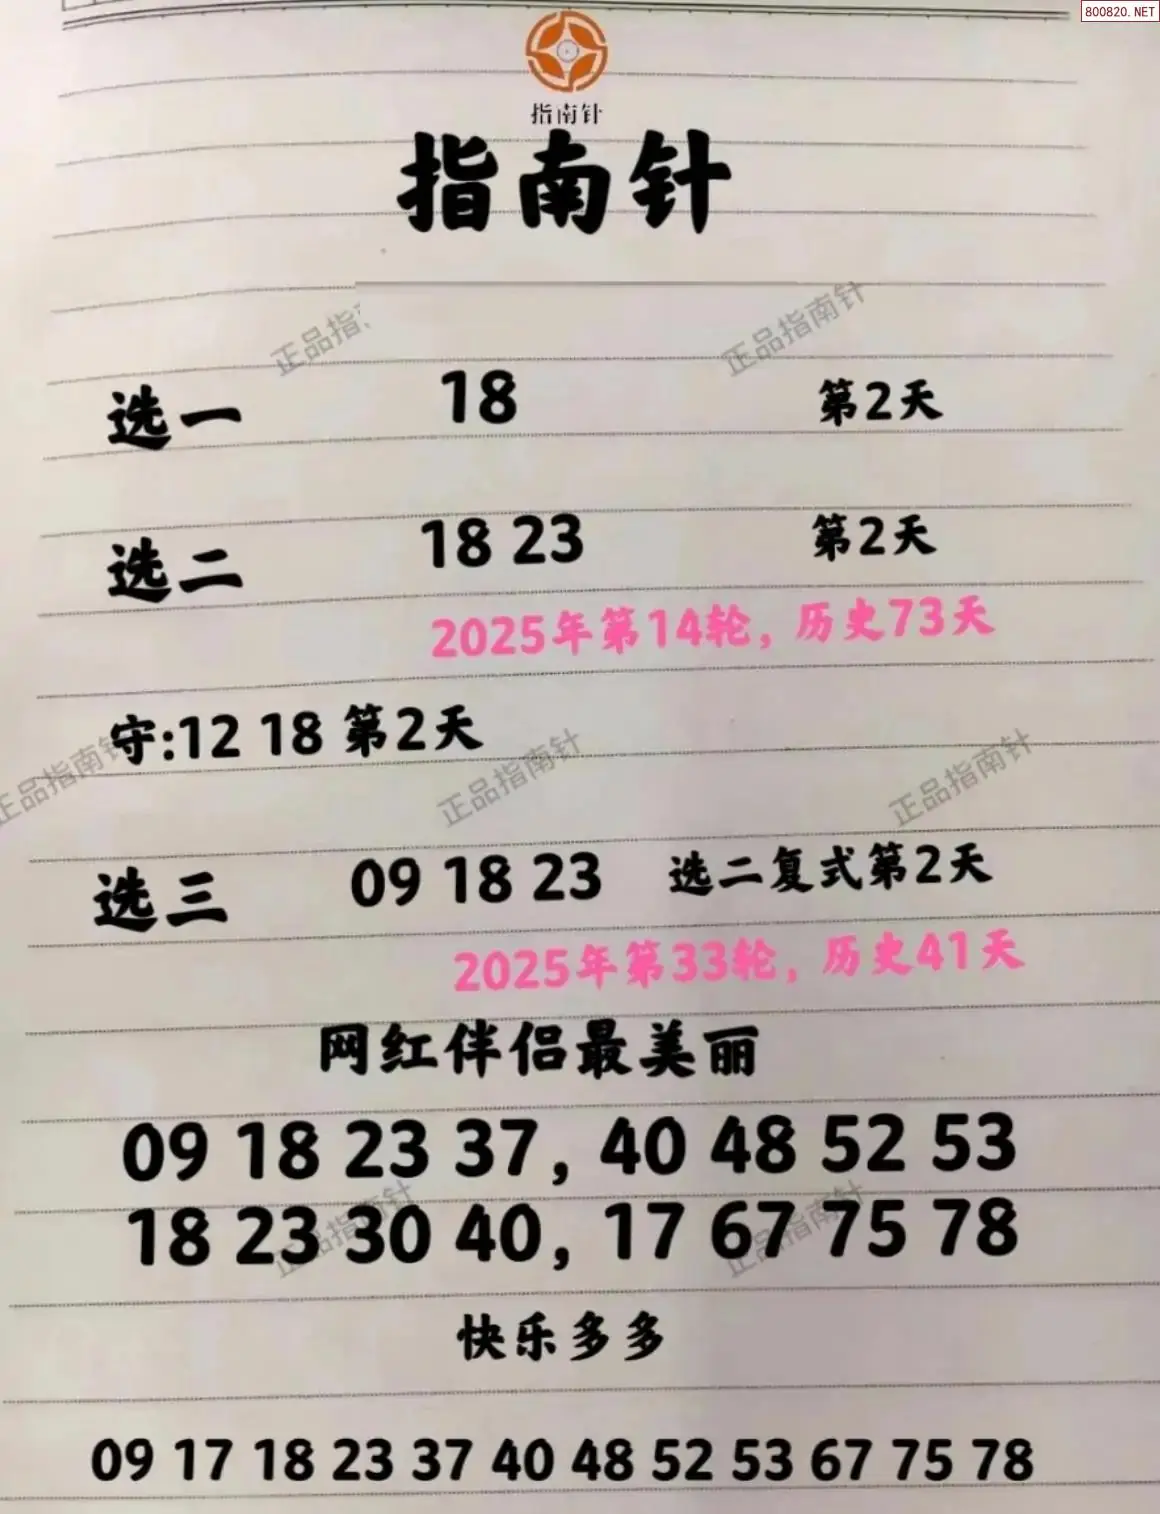 800820.NET
指南针
指南针
正品指
正品指南针
选一 18 第2天
选二 18 23 第2天
2025年第14轮，历史73天
守:12 18 第2天
正品指南针
正品指南针
正品指南针
选三 09 18 23 选二复式第2天
2025年第33轮，历史41天
网红伴侣最美丽
09 18 23 37, 40 48 52 53
正品指南针
正品指南针
18 23 30 40, 17 67 75 78
快乐多多
09 17 18 23 37 40 48 52 53 67 75 78